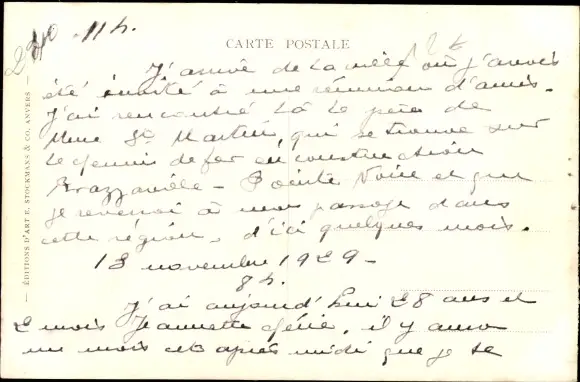 11 h.
CARTE POSTALE
J'arrive de la ville où j'avais
été invité à une réunion d'amis.
J'ai rencontré là le père de
Mme St Martin, qui se trouve sur
le chemin de fer en construction
Brazzaville - Pointe Noire et que
je reverrai à mon passage dans
cette région, d'ici quelques mois.
13 novembre 1929 -
8 h.
J'ai aujourd'hui 28 ans et
2 mois Jeannette chérie, il y aura
un mois cet après midi que je te
ÉDITIONS D'ART E. STOCKMANS & CO. ANVERS